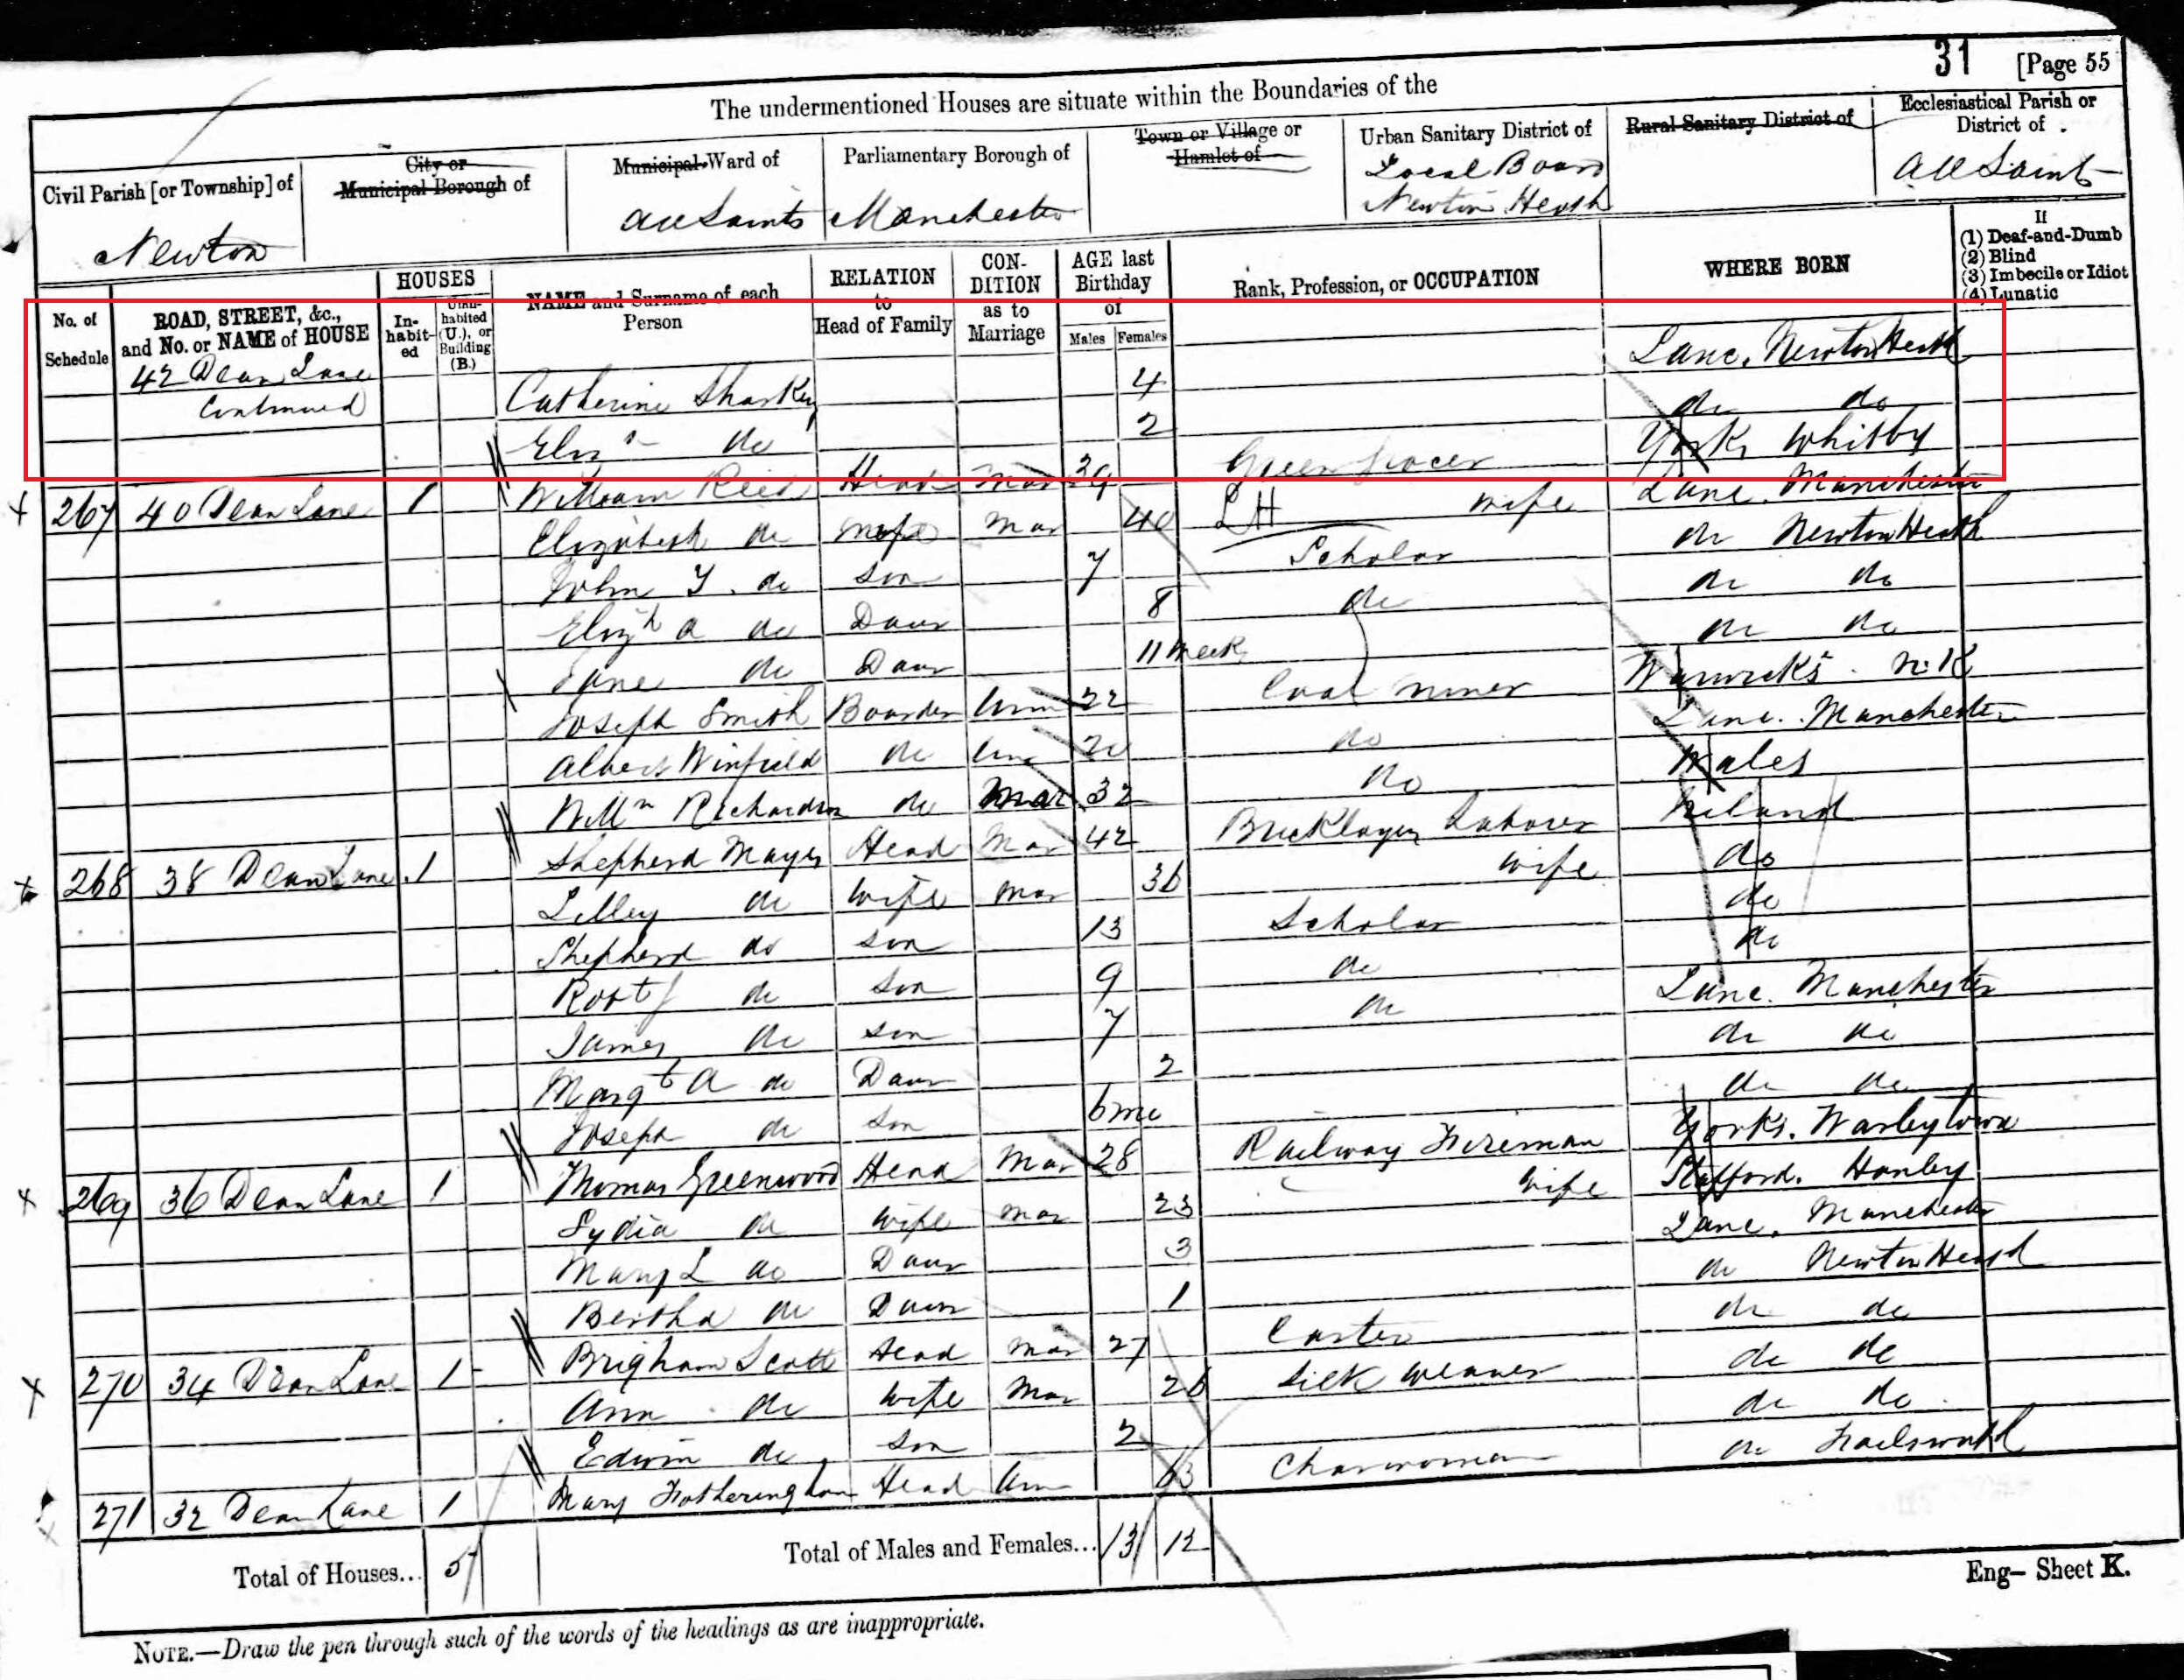 31 [Page 55
The undermentioned Houses are situate within the Boundaries of the
Civil Parish [or Township] of
Newton
City or Municipal Borough of
Municipal Ward of
All Saints
Parliamentary Borough of
Manchester
Town or Village or Hamlet of
Urban Sanitary District of
Local Board
Newton Heath
Rural Sanitary District of
Ecclesiastical Parish or District of
All Saints
No. of Schedule
ROAD, STREET, &c., and No. or NAME of HOUSE
HOUSES
In-habit-ed
Unin-habited (U.), or Building (B.)
NAME and Surname of each Person
RELATION to Head of Family
CON-DITION as to Marriage
AGE last Birthday of
Males Females
Rank, Profession, or OCCUPATION
WHERE BORN
If
(1) Deaf-and-Dumb
(2) Blind
(3) Imbecile or Idiot
(4) Lunatic
42 Dean Lane Continued Catherine Sharkey 4 Lanc. Newton Heath
Eliz do 2 do do
267 40 Dean Lane 1 William Reed Head Mar 39 Green Grocer Yorks Whitby
Elizabeth do Wife Mar 40 wife Lanc. Manchester
John T. do Son 7 Scholar do Newton Heath
Elizh A do Daur 8 do do do
Jane do Daur 11 Weeks do do
Joseph Smith Boarder Unm 22 Coal Miner Warwicks. N.K
Albert Winfield do Unm 20 do Lanc. Manchester
Willm Richardson do Mar 32 do Wales
268 38 Dean Lane 1 Shepherd Mayes Head Mar 42 Bricklayers Laborer Ireland
Lilley do Wife Mar 36 wife do
Shepherd do Son 13 Scholar do
Robt do Son 9 do do
James do Son 7 do Lanc. Manchester
Margt A do Daur 2 do do
Joseph do Son 6 mo do do
269 36 Dean Lane 1 Thomas Greenwood Head Mar 28 Railway Fireman Yorks. Warleytown
Lydia do Wife Mar 23 wife Stafford. Hanley
Mary L do Daur 3 Lanc. Manchester
Bertha do Daur 1 do Newton Heath
270 34 Dean Lane 1 Brigham Scott Head Mar 27 Carter do do
Ann do Wife Mar 26 Silk Weaver do do
Edwin do Son 2 do do
271 32 Dean Lane 1 Mary Fotheringham Head Un 63 Charwoman do Failsworth
Total of Houses... 5
Total of Males and Females... 13 12
Eng- Sheet K.
NOTE.—Draw the pen through such of the words of the headings as are inappropriate.